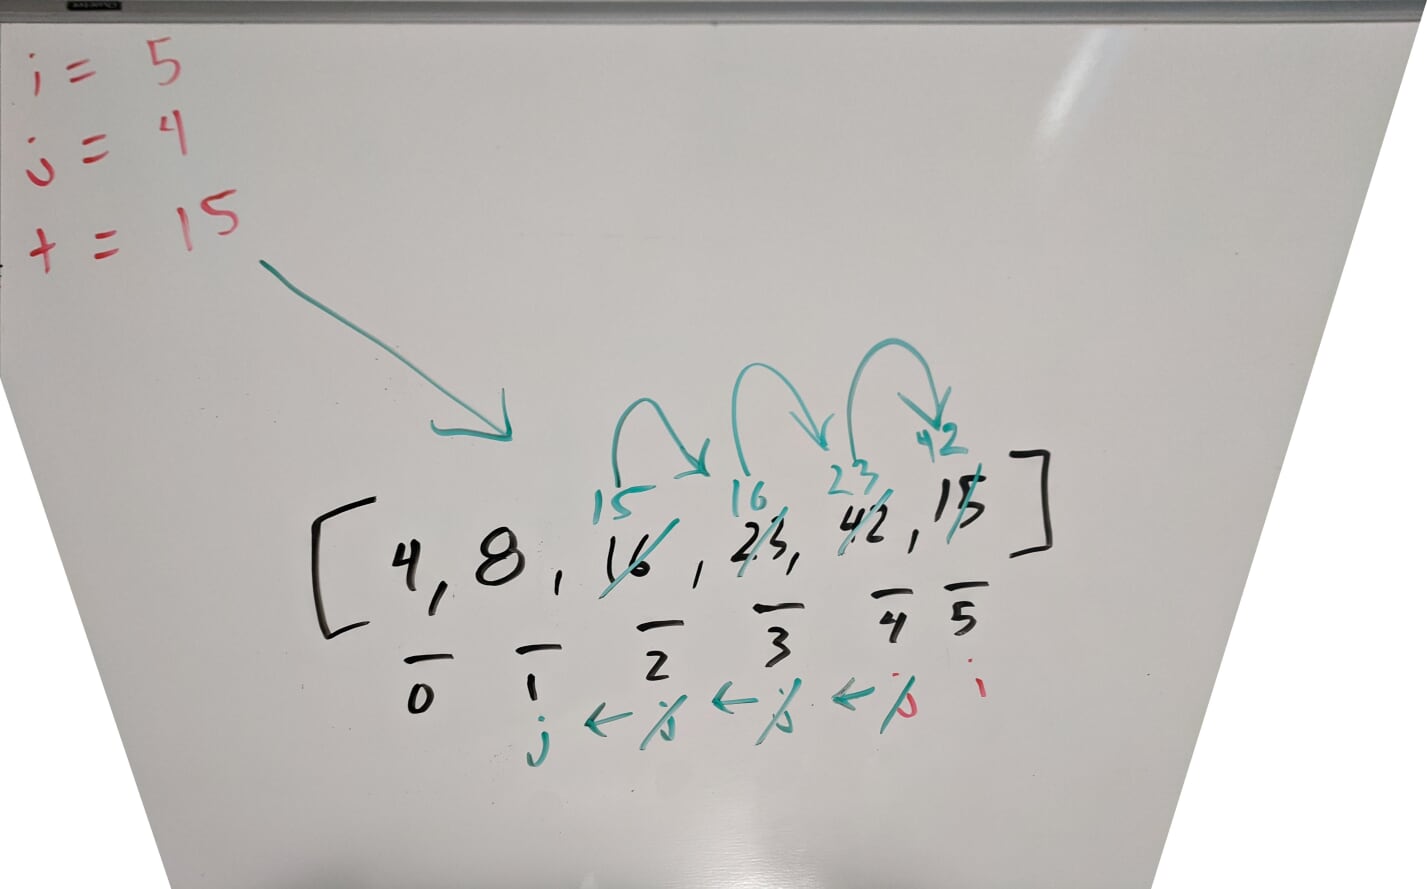 i = 5
j = 4
t = 15
42
15 16 23
[4, 8, 16, 23, 42, 15]
0 1 2 3 4 5
j ← j ← j ← j i